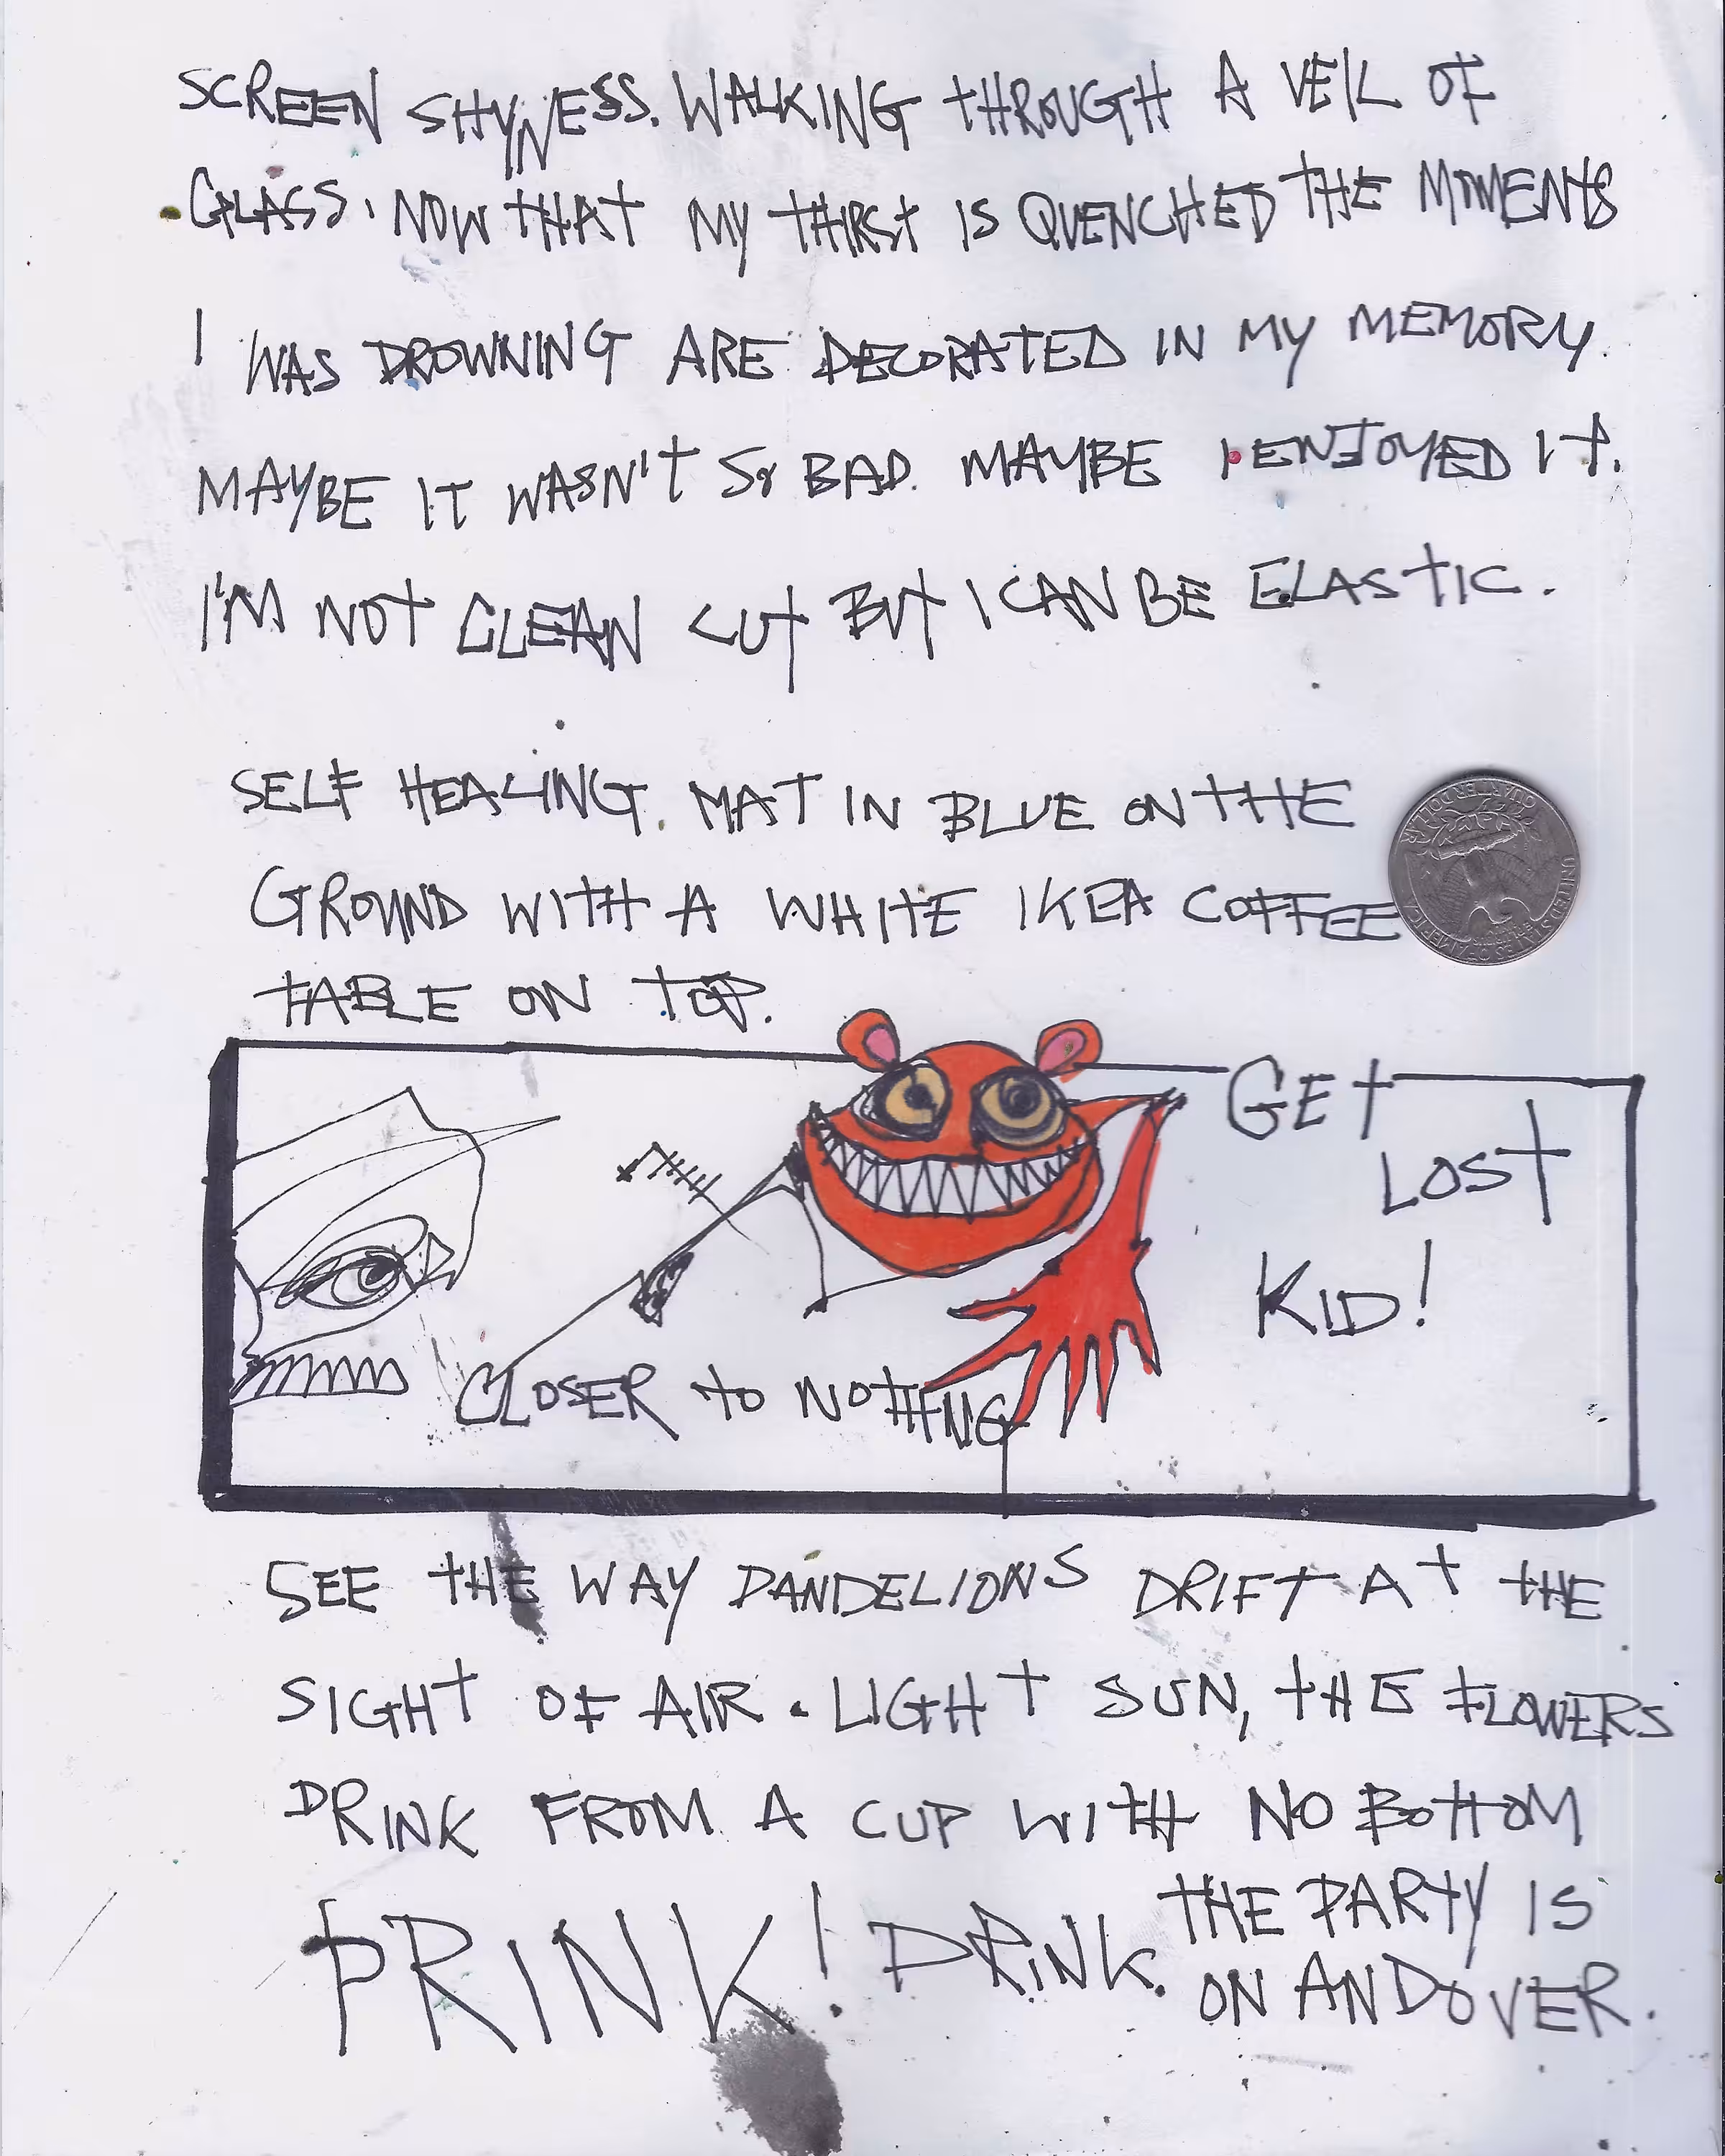 SCREEN SHYNESS. WALKING THROUGH A VEIL OF
GLASS. NOW THAT MY THIRST IS QUENCHED THE MOMENTS
I WAS DROWNING ARE DECORATED IN MY MEMORY.
MAYBE IT WASN'T SO BAD. MAYBE I ENJOYED IT.
I'M NOT CLEAN CUT BUT I CAN BE ELASTIC.
SELF HEALING. MAT IN BLUE ON THE
GROUND WITH A WHITE IKEA COFFEE
TABLE ON TOP.
QUARTER DOLLAR
UNITED STATES OF AMERICA
GET
LOST
KID!
CLOSER TO NOTHING
SEE THE WAY DANDELIONS DRIFT AT THE
SIGHT OF AIR. LIGHT SUN, THE FLOWERS
DRINK FROM A CUP WITH NO BOTTOM
DRINK! DRINK. THE PARTY IS
ON AND OVER.